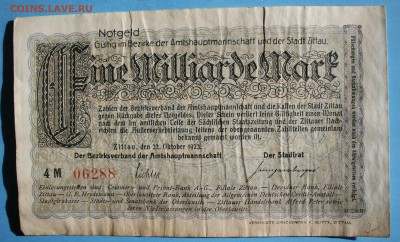 COINS.ЛАВЕ.RU
Notgeld
Gültig im Bezirke der Amtshauptmannschaft und der Stadt Zittau.
Eine Milliarde Mark
Zahlen der Bezirksverband der Amtshauptmannschaft und die Kassen der Stadt Zittau
gegen Rückgabe dieses Notgeldes. Dieser Schein verliert seine Gültigkeit einen Monat
nach dem im amtlichen Teile der Sächsischen Staatszeitung und der Zittauer
die Außerverkehrsetzung seitens der obengenannten Zahlstellen gemeinsam
bekannt gemacht worden ist.
Zittau, den 22. Oktober 1923.
Der Bezirksverband der Amtshauptmannschaft Der Stadtrat
4 M 06288
Einlösungsstellen sind: Commerz- und Privat-Bank A.-G., Filiale Zittau — Dresdner Bank, Filiale
Zittau — G. E. Heydemann — Oberlausitzer Bank, Abteilung der Allgemeinen Deutschen Credit-Anstalt —
Stadtgirokasse — und der Oberlausitz — Zittauer Handelsbank Alfred Peter sowie
deren Niederlassungen in der Oberlausitz.
ZITTAU.